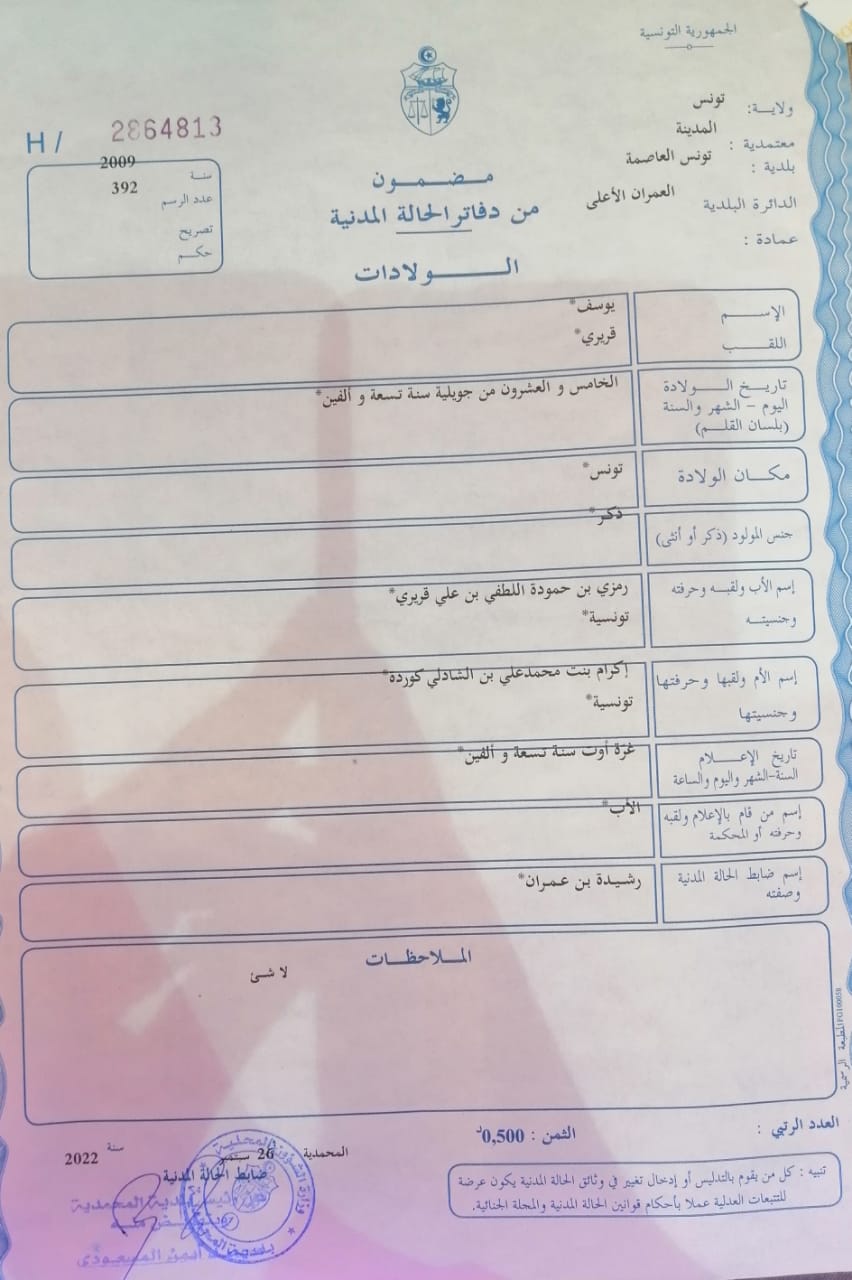 الجمهورية التونسية
ولاية: تونس
معتمدية : المدينة
بلدية : تونس العاصمة
الدائرة البلدية العمران الأعلى
عمادة :
H / 2864813
سنة 2009
عدد الرسم 392
تصريح
حكم
مضمون
من دفاتر الحالة المدنية
الولادات
الإسم يوسف*
اللقب قريري*
تاريخ الولادة الخامس و العشرون من جويلية سنة تسعة و ألفين*
اليوم – الشهر والسنة
(بلسان القلم)
مكان الولادة تونس*
جنس المولود (ذكر أو أنثى) ذكر*
إسم الأب ولقبه وحرفته رمزي بن حمودة اللطفي بن علي قريري*
وجنسيته تونسية*
إسم الأم ولقبها وحرفتها إكرام بنت محمدعلي بن الشادلي كورده*
وجنسيتها تونسية*
تاريخ الإعلام غرّة أوت سنة تسعة و ألفين*
السنة-الشهر واليوم والساعة
إسم من قام بالإعلام ولقبه الأب*
وحرفته أو المحكمة
إسم ضابط الحالة المدنية رشيدة بن عمران*
وصفته
الملاحظات
لا شئ
المطبعة الرسمية
العدد الرتبي :
الثمن : 0,500د
المحمدية 26 سبتمبر سنة 2022
ضابط الحالة المدنية
تنبيه : كل من يقوم بالتدليس أو إدخال تغيير في وثائق الحالة المدنية يكون عرضة
للتتبعات العدلية عملا بأحكام قوانين الحالة المدنية والمجلة الجنائية.
وزارة الشؤون المحلية
بلدية المحمدية
أيمن المسعودي